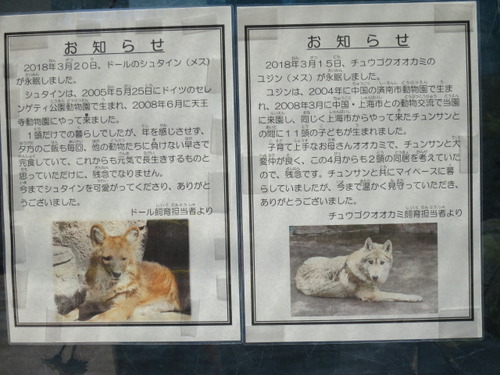 お知らせ
2018年3月20日、ドールのシュタイン（メス）
が永眠しました。
シュタインは、2005年5月25日にドイツのセレ
ンゲティ公園動物園で生まれ、2008年6月に天王
寺動物園にやって来ました。
1頭だけでの暮らしでしたが、年を感じさせず、
夕方のご飯も毎回、他の動物たちに負けない早さで
完食していて、これからも元気で長生きするものと
思っていただけに、残念でなりません。
今までシュタインを可愛がってくださり、ありがと
うございました。
ドール飼育担当者より
お知らせ
2018年3月15日、チュウゴクオオカミの
ユジン（メス）が永眠しました。
ユジンは、2004年に中国の済南市動物園で生ま
れ、2008年3月に中国・上海市との動物交流で当園
に来園し、同じく上海市からやって来たチュンサンと
の間に11頭の子どもが生まれました。
子育て上手なお母さんオオカミで、チュンサンと大
変仲が良く、この4月からも2頭の同居を考えていた
ので、残念です。チュンサンと共にマイペースに暮
らしていましたが、今まで温かく見守っていただき、
ありがとうございました。
チュウゴクオオカミ飼育担当者より